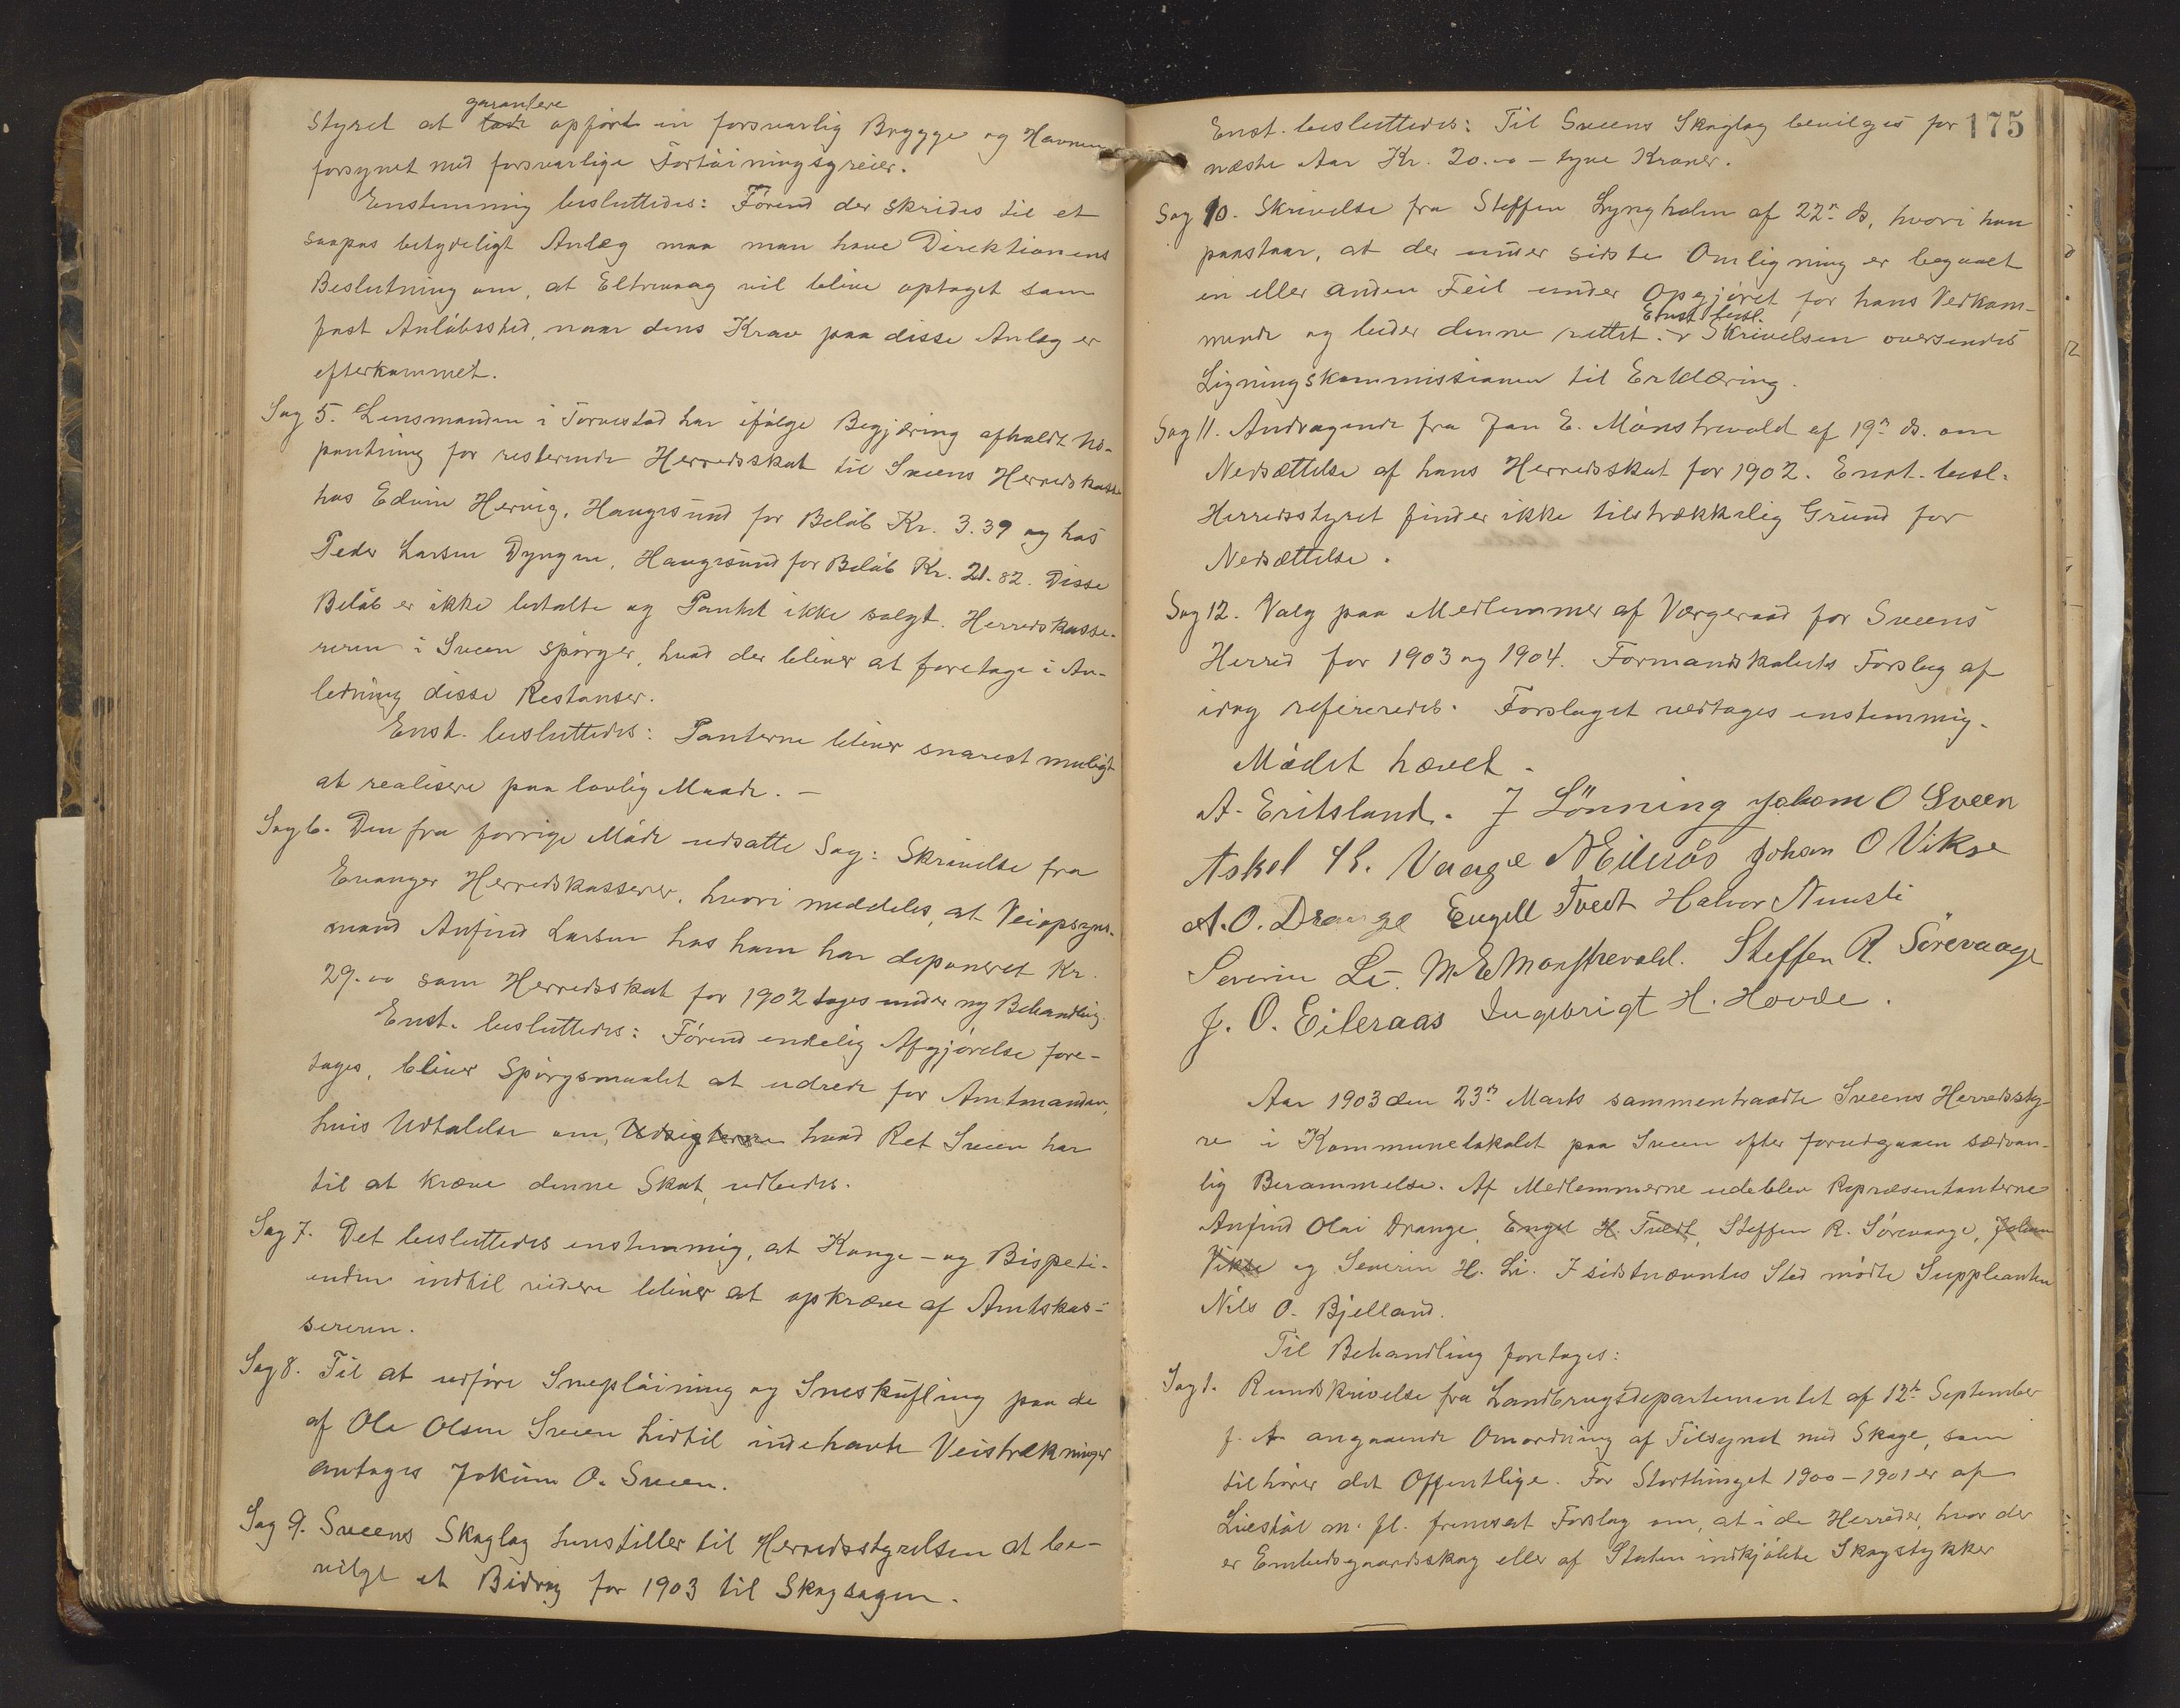 garantere
Styret at lade opført en forsvarlig Brygge og Havnen
forsynet med forsvarlige Fortøiningsgreier.
Enstemmig besluttedes: Førend der skrides til et
saapas betydeligt Anlæg maa man have Direktionens
Beslutning om, at Eltrevaag vil blive optaget som
fast Anløbssted, naar dens Krav paa disse Anlæg er
efterkommet.
Sag 5. Lensmanden i Torvestad har ifølge Begjæring afholdt Ud-
pantning for resterende Herredsskat til Sveens Herredskasse
hos Edvin Hervig, Haugesund for Beløb Kr. 3.39 og hos
Peder Larsen Dyngen, Haugesund for Beløb Kr. 21.82. Disse
Beløb er ikke betalte og Pantet ikke solgt. Herredskasse-
reren i Sveen spørger, hvad der bliver at foretage i An-
ledning disse Restanser.
Enst. besluttedes: Panterne bliver snarest muligt
at realisere paa lovlig Maade. —
Sag 6. Den fra forrige Møde udsatte Sag: Skrivelse fra
Evanger Herredskasserer, hvori meddeles, at Veiopsyns-
mand Anfind Larsen hos ham har deponeret Kr.
29.00 som Herredsskat for 1902 tages under ny Behandling.
Enst. besluttedes: Førend endelig Afgjørelse fore-
tages, bliver Spørgsmaalet at udrede for Amtmanden,
hvis Udtalelse om, Udsigterne hvad Ret Sveen har
til at kræve denne Skat, udbedes.
Sag 7. Det besluttedes enstemmig, at Konge- og Bispeti-
enden indtil videre bliver at opkræve af Amtskas-
sereren.
Sag 8. Til at udføre Sneepløining og Sneskufling paa de
af Ole Olsen Sveen hidtil indehavte Veistrækninger
antages Jokum O. Sveen.
Sag 9. Sveens Skoglag henstiller til Herredsstyrelsen at be-
vilge et Bidrag for 1903 til Skogsagen.
175
Enst. besluttedes: Til Sveens Skoglag bevilges for
næste Aar Kr. 20.00 — tyve Kroner.
Sag 10. Skrivelse fra Steffen Lyngholm af 22n ds, hvori han
paastaar, at der under sidste Omligning er begaaet
en eller anden Feil under Opgjøret for hans Vedkom-
Enst. besl.
mende og beder denne rettet. Skrivelsen oversendes
Ligningskommissionen til Erklæring.
Sag 11. Andragende fra Jan E. Mønstrevold af 19n ds. om
Nedsættelse af hans Herredsskat for 1902. Enst. besl.
Herredsstyret finder ikke tilstrækkelig Grund for
Nedsættelse.
Sag 12. Valg paa Medlemmer af Værgeraad for Sveens
Herred for 1903 og 1904. Formandskabets Forslag af
idag refereredes. Forslaget vedtages enstemmig.
Mødet hævet.
A. Eritsland. J Lönning Johan O Sveen
Askel Vaage N Eilraas Johan O Vikse
A. O. Drange Engell Tvedt Halvor Nunsli
Severin Li. M E Mønstrevold. Steffen R. Sörevaage
J. O. Eileraas Ingebrigt H. Hovde.
Aar 1903 den 23n Marts sammentraadte Sveens Herredssty-
re i Kommunelokalet paa Sveen efter forudgaaen sædvan-
lig Berammelse. Af Medlemmerne udeblev Repræsentanterne
Anfind Olai Drange, Engel H. Tvedt, Steffen R. Sørevaage, Johan
Vikse og Severin H. Li. I sidstnævntes Sted mødte Suppleanten
Nils O. Bjelland.
Til Behandling foretages:
Sag 1. Rundskrivelse fra Landbrugsdepartementet af 12te September
f. A. angaaende Omordning af Tilsynet med Skoge, som
tilhører det Offentlige. For Storthinget 1900–1901 er af
Liestøl m. fl. fremsat Forslag om, at i de Herreder, hvor der
er Embedsgaardsskog eller af Staten indkjøbte Skogstykker